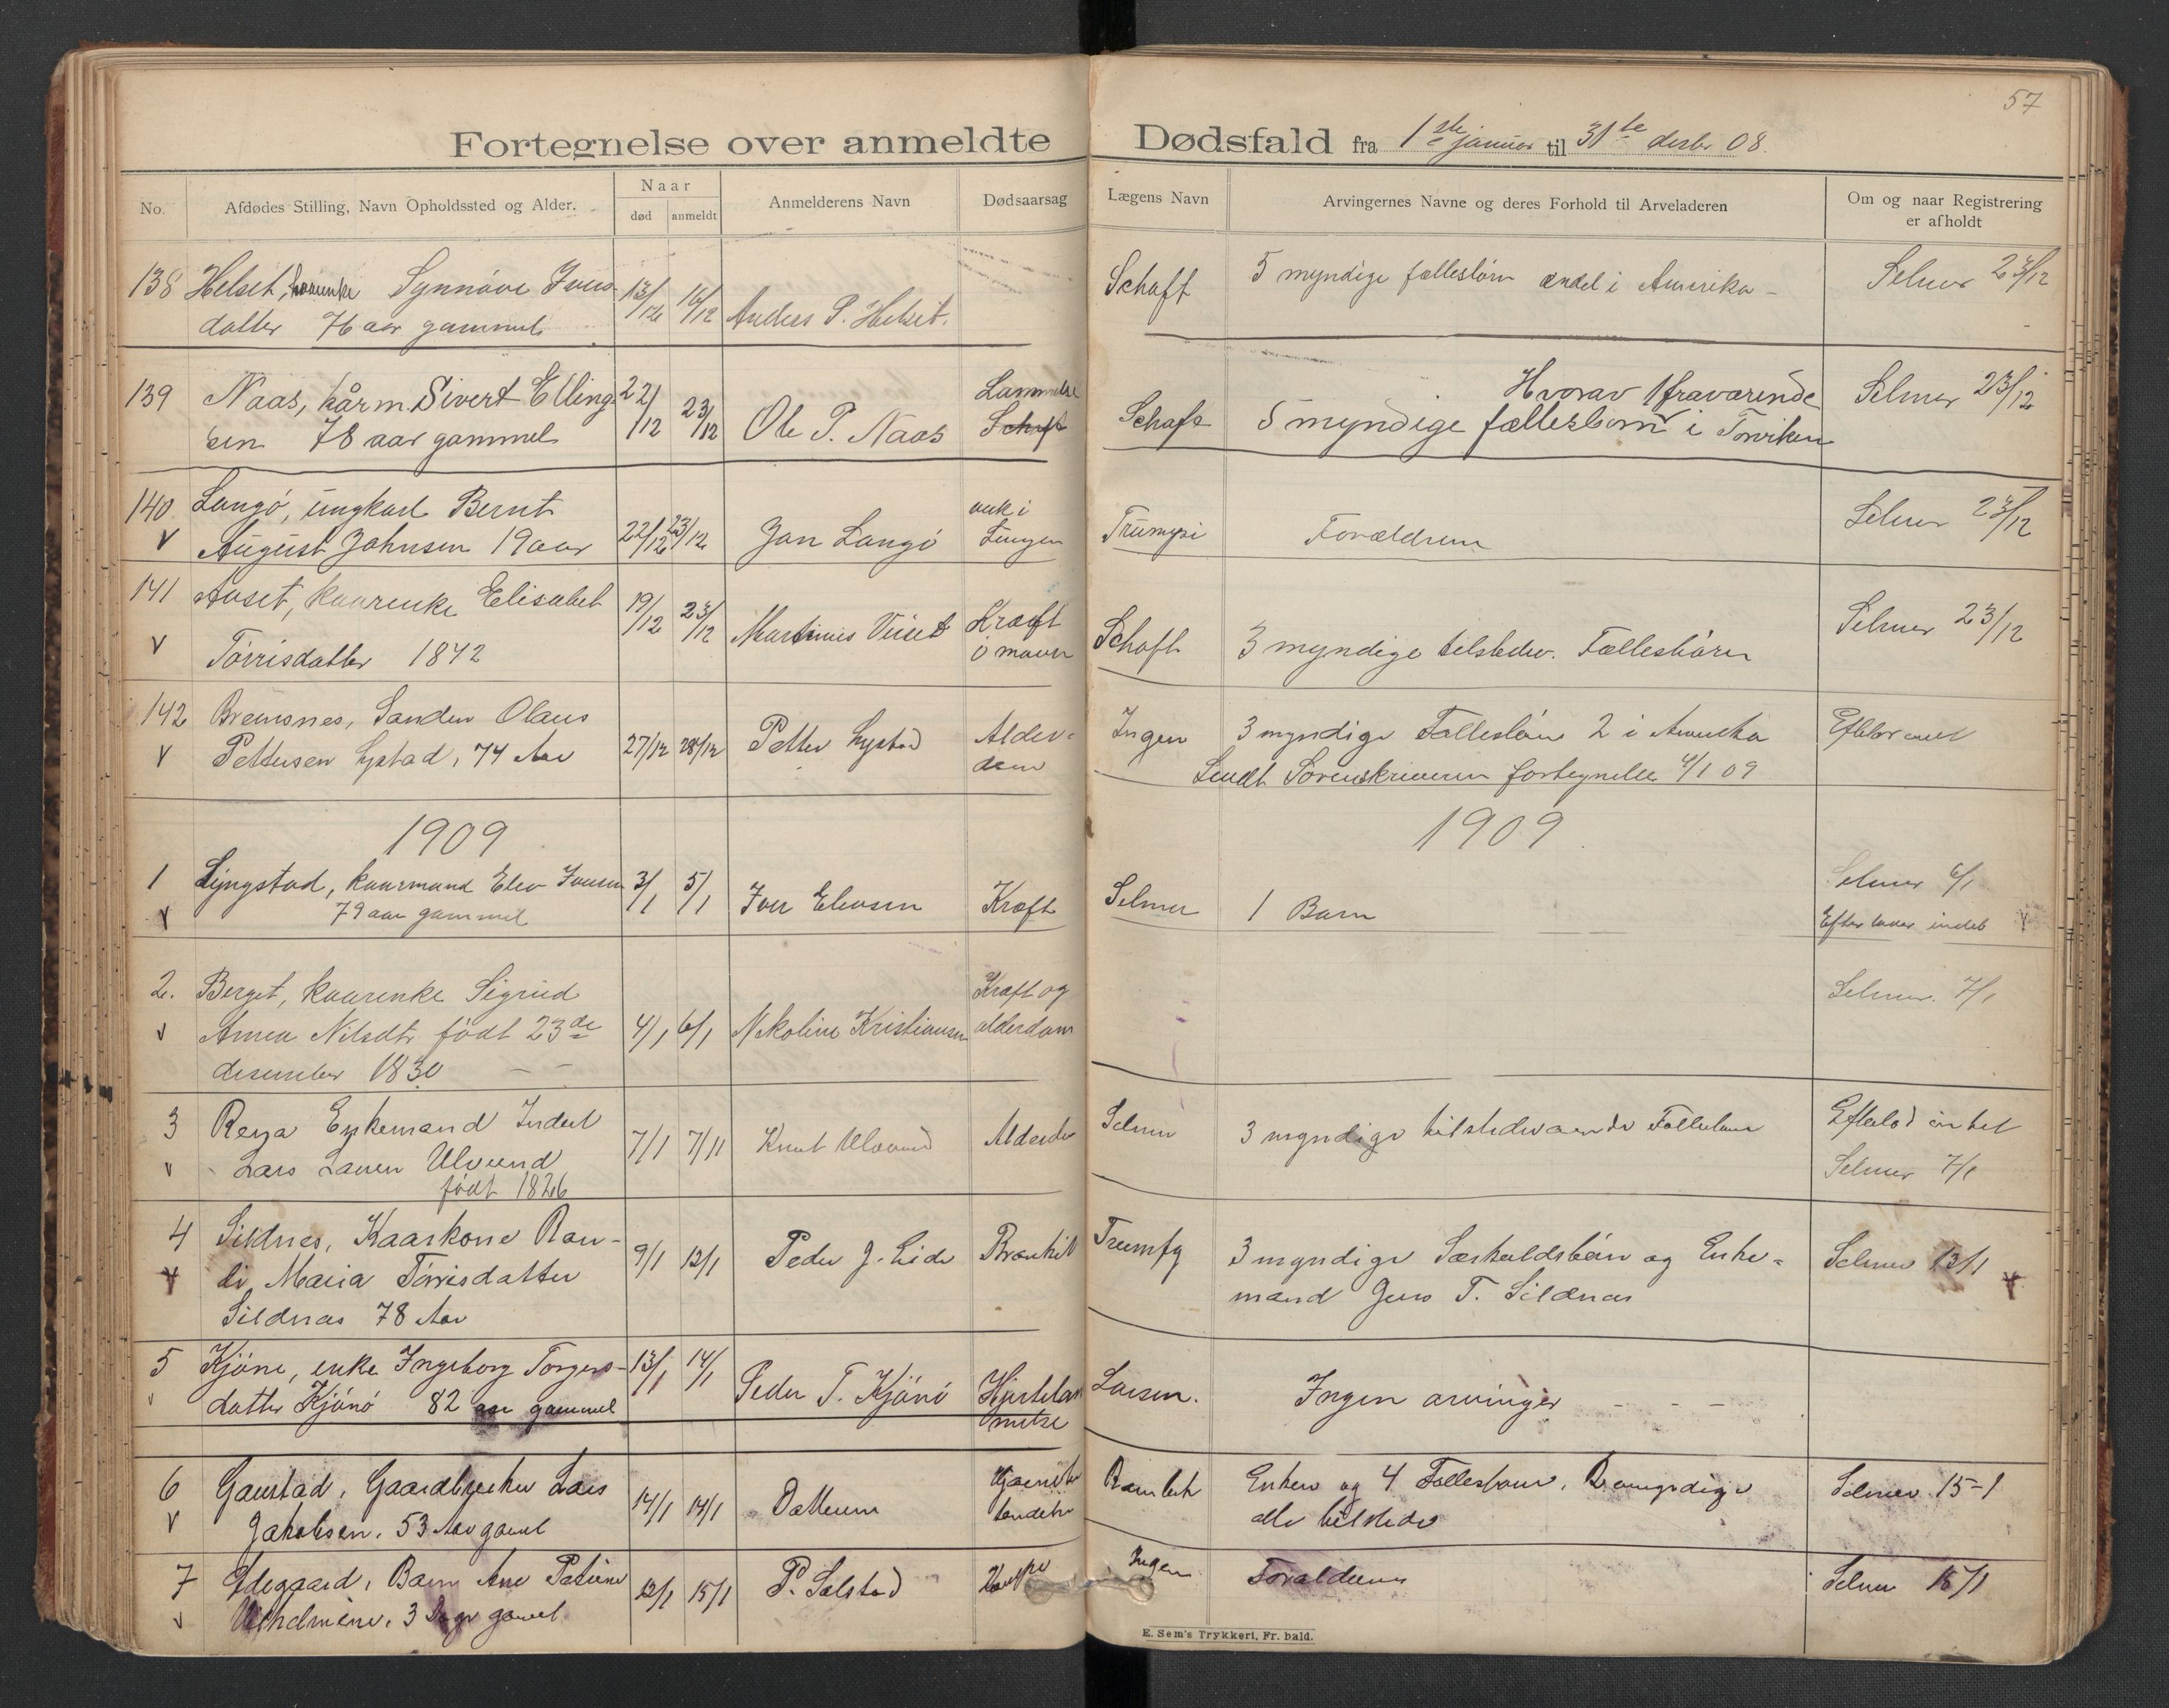 57
Fortegnelse over anmeldte Dødsfald fra 1ste januar til 31te desbr 08.
No. Afdødes Stilling, Navn Opholdssted og Alder. Naar Anmelderens Navn Dødsaarsag Lægens Navn Arvingernes Navne og deres Forhold til Arveladeren Om og naar Registrering
død anmeldt er afholdt
138 Helset, Synnøve Ivers- 13/12 16/12 Anders P. Helset. Schaft 5 myndige fællesbørn i Amerika - Selmer 23/12
datter 76 aar gammel
139 Naas, kårm. Sivert Elling- 22/12 23/12 Ole P. Naas Schaft Hvorav 1 fraværende Selmer 23/12
sen 78 aar gammel 5 myndige fællesbørn i Torviken
140 Langö, ungkarl Bernt Selmer 23/12
v August Johnsen 19 aar 22/12 23/12 Jan Langö Forældrene
141 Aaset, kaarenke Elisabet 19/12 23/12 Martinus Kræft Schaft Selmer 23/12
v Törrisdatter 1842 3 myndige tilstedev. Fællesbörn
142 Bremsnes, Sanden Olaus
v Pettersen Lystad, 74 Aar 27/12 28/12 Petter Lystad Alder-
dom Ingen 3 myndige Fællesbörn 2 i Amerika
Sendt Sorenskriveren fortegnelse 4/1 09
1909
1909
1 Lyngstad, kaarmand Elev Iversen 3/1 5/1 Iver Elevsen Kræft Selmer 1 Barn Selmer 6/1
v 79 aar gammel Efterlader intet v
2. Berget, kaarenke Sigrid Kræft og Selmer. 7/1
v Anna Nilsdtr født 23de 4/1 6/1 Nikoline Kristiansen alderdom
desember 1830
3 Enkemand 7/1 7/1 Knut Ulvund Selmer 3 myndige tilstedeværende Fællesbørn
v Lars Larsen Ulvund Selmer 7/1
født 1826
4 Sildnes, Kaarkone Ran- 9/1 12/1 Peder J. Lide Bronkit 3 myndige Særkuldsbørn og Enke- Selmer 13/1
v di Maria Törrisdatter mand Jens T. Sildnas v
Sildnas 78 Aar
5 Kjönö, enke Ingeborg Torgers- 13/1 14/1 Peder T. Kjönö Larsen. Ingen arvinger - - -
v datter Kjönö 82 aar gammel
6 Gaustad, Gaardbruker Lars 14/1 14/1 Datteren Enken og 4 Fællesbørn, Selmer 15-1
v Jakobsen, 53 Aar gamel alle tilstede
7 Ødegaard, Barn Ane Petrine 12/1 15/1 P. Solstad Ingen Forældrene Selmer 15/1
v Vilhelmine, 3 Dage gamel
E. Sem's Trykkeri, Fr. hald.